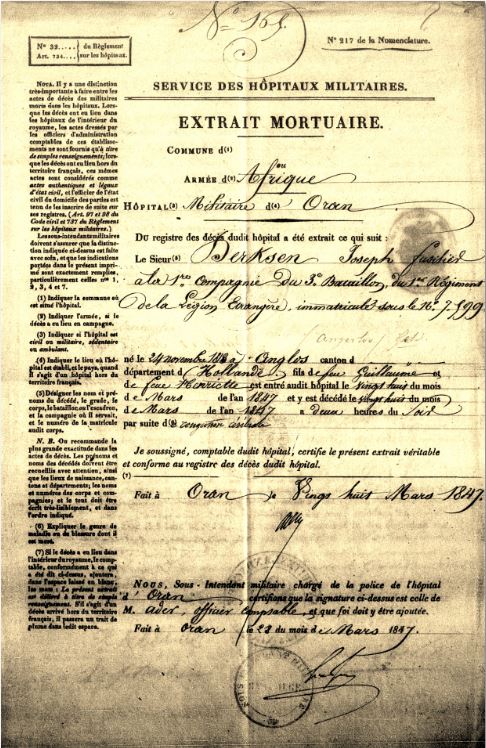 No 165.
Nos 32.....
Art. 724....
du Règlement
sur les hôpitaux.
No 217 de la Nomenclature.
NOTA. Il y a une distinction
très-importante à faire entre les
actes de décès des militaires
morts dans les hôpitaux. Lors-
que les décès ont eu lieu dans
les hôpitaux de l'intérieur du
royaume, les actes dressés par
les officiers d'administration
comptables de ces établisse-
ments ne sont fournis qu'à titre
de simples renseignements; lors-
que les décès ont eu lieu hors du
territoire français, ces mêmes
actes sont considérés comme
actes authentiques et légaux
d'état civil, et l'officier de l'état
civil du domicile des parties est
tenu de les inscrire de suite sur
ses registres. (Art. 97 et 98 du
Code civil et 737 du Règlement
sur les hôpitaux militaires.)
Les sous-intendants militaires
doivent s'assurer que la distinc-
tion indiquée ci-dessus est faite
avec soin, et que les indications
portées dans le présent impri-
mé sont exactement remplies,
particulièrement celles nos 1,
2, 3, 4 et 7.
(1) Indiquer la commune où
est situé l'hôpital.
(2) Indiquer l'armée, si le
décès a eu lieu en campagne.
(3) Indiquer si l'hôpital est
civil ou militaire, sédentaire
ou ambulant.
(4) Indiquer le lieu où l'hô-
pital est établi, et le pays, quand
il s'agit d'un hôpital hors du
territoire français.
(5) Désigner les nom et pré-
noms du décédé, le grade, le
corps, le bataillon ou l'escadron,
et la compagnie où il servait,
et le numéro de la matricule
audit corps.
N. B. On recommande la
plus grande exactitude dans les
actes de décès. Les prénoms et
noms des décédés doivent être
recueillis avec attention, ainsi
que les lieux de naissance, can-
tons et départements; les noms
et numéros des corps et compa-
gnies; et le tout doit être
écrit très-lisiblement, et dans
l'ordre indiqué.
(6) Expliquer le genre de
maladie ou de blessure dont il
est mort.
(7) Si le décès a eu lieu dans
l'intérieur du royaume, le comp-
table, conformément à ce qui
a été dit ci-dessus, ajoutera,
dans l'espace laissé en blanc,
les mots: Le présent extrait
est délivré à titre de simple
renseignement. S'il s'agit d'un
décès arrivé hors du territoire
français, il passera un trait de
plume dans ledit espace.
SERVICE DES HÔPITAUX MILITAIRES.
EXTRAIT MORTUAIRE.
COMMUNE d(1)
ou
ARMÉE d(2) Afrique
HÔPITAL(3) Militaire d(4) Oran
DU registre des décès dudit hôpital a été extrait ce qui suit :
Le Sieur(5) Berksen Joseph fusilier
à la 1re Compagnie du 3e Bataillon, du 1er Régiment
de la Légion Etrangère, immatriculé sous le No 7,599
né le 24 novembre à Anglos canton d
département d Hollande fils de feu Guillaume et
de feue Henriette est entré audit hôpital le vingt huit du mois
de Mars de l'an 1847 et y est décédé le vingt huit du mois
de Mars de l'an 1847 à deux heures du soir
par suite d(6)
Je soussigné, comptable dudit hôpital, certifie le présent extrait véritable
et conforme au registre des décès dudit hôpital.
(7)
Fait à Oran le Vingt huit Mars 1847.
NOUS, Sous-Intendant militaire chargé de la police de l'hôpital
d' Oran certifions que la signature ci-dessus est celle de
M. Ader, officier comptable, et que foi doit y être ajoutée.
Fait à Oran le 28 du mois de Mars 1847.